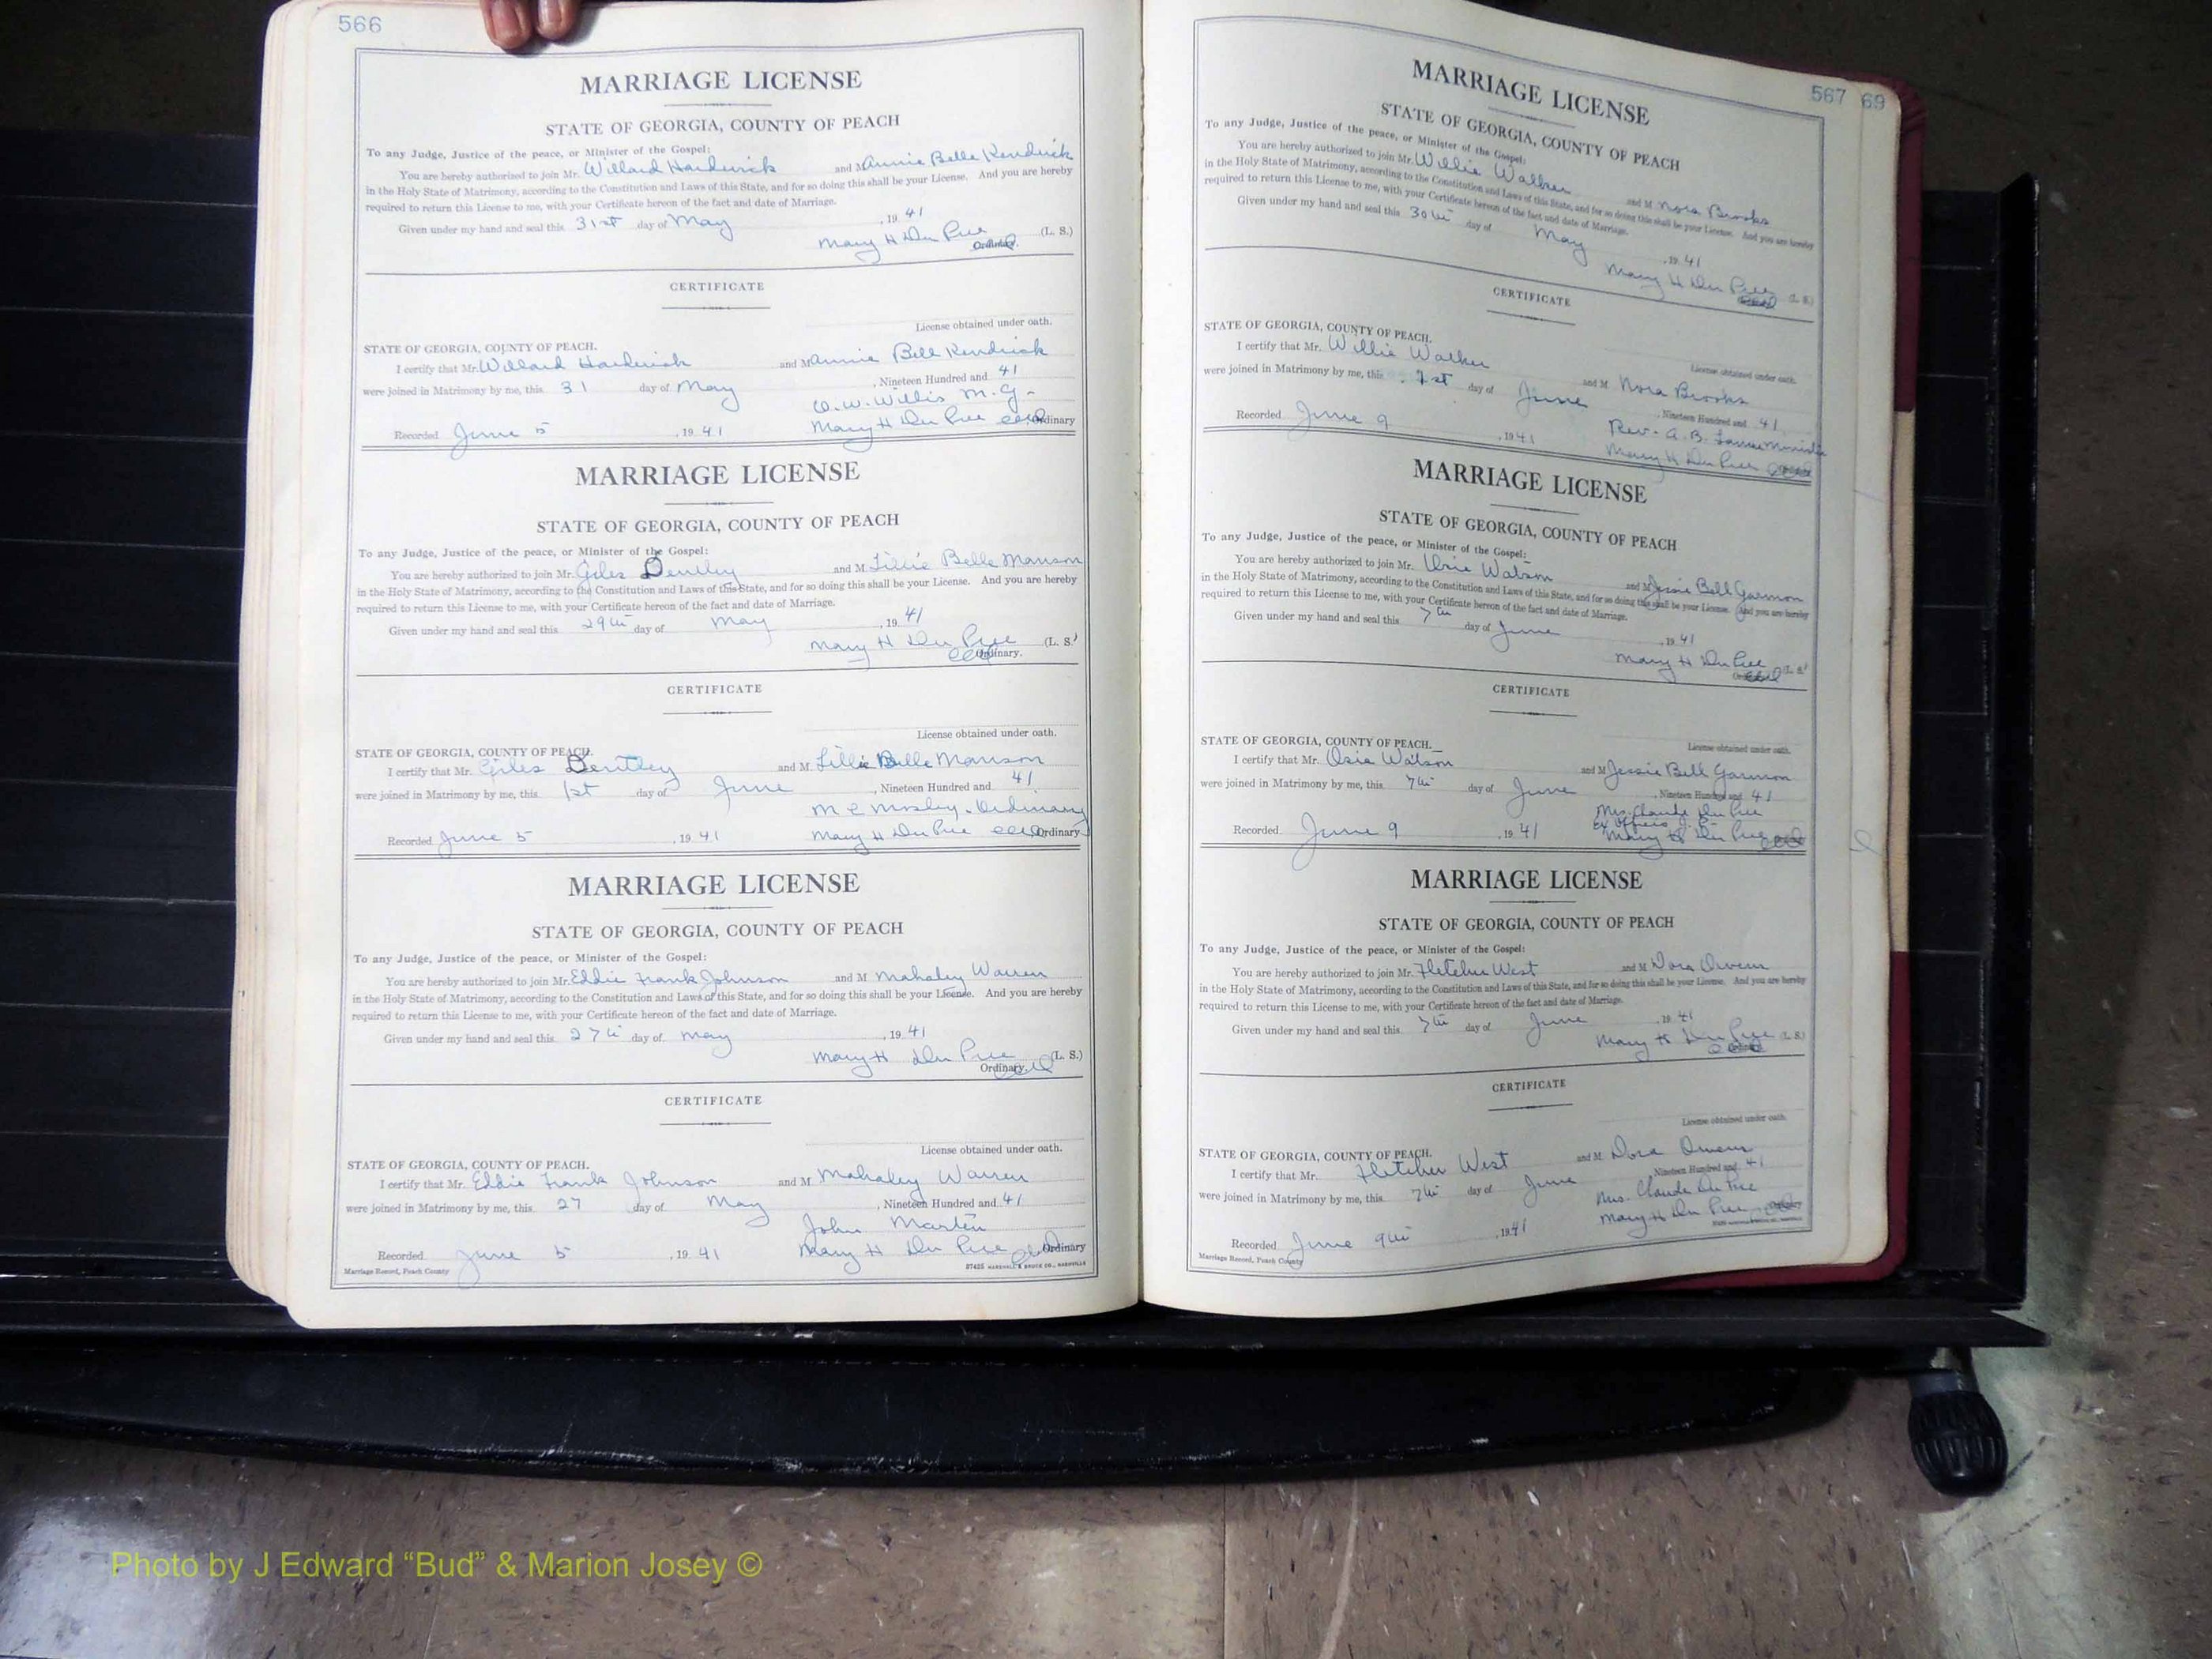 566
MARRIAGE LICENSE
STATE OF GEORGIA, COUNTY OF PEACH
To any Judge, Justice of the peace, or Minister of the Gospel:
You are hereby authorized to join Mr. Willard Hardwick and M Annie Belle Kendrick
in the Holy State of Matrimony, according to the Constitution and Laws of this State, and for so doing this shall be your License. And you are hereby
required to return this License to me, with your Certificate hereon of the fact and date of Marriage.
Given under my hand and seal this 31st day of May , 19 41
Mary H Du Pree (L. S.)
Ordinary.
CERTIFICATE
License obtained under oath.
STATE OF GEORGIA, COUNTY OF PEACH.
I certify that Mr. Willard Hardwick and M Annie Bell Kendrick
were joined in Matrimony by me, this 31 day of May , Nineteen Hundred and 41
O. W. Willis M. G.
Recorded June 5 , 19 41 Mary H Du Pree Ordinary
MARRIAGE LICENSE
STATE OF GEORGIA, COUNTY OF PEACH
To any Judge, Justice of the peace, or Minister of the Gospel:
You are hereby authorized to join Mr. Giles Bentley and M Lillie Belle Manson
in the Holy State of Matrimony, according to the Constitution and Laws of this State, and for so doing this shall be your License. And you are hereby
required to return this License to me, with your Certificate hereon of the fact and date of Marriage.
Given under my hand and seal this 29th day of May , 19 41
Mary H Du Pree (L. S.)
Ordinary.
CERTIFICATE
License obtained under oath.
STATE OF GEORGIA, COUNTY OF PEACH.
I certify that Mr. Giles Bentley and M Lillie Belle Manson
were joined in Matrimony by me, this 1st day of June , Nineteen Hundred and 41
M C Mosley. Ordinary
Recorded June 5 , 19 41 Mary H Du Pree Ordinary
MARRIAGE LICENSE
STATE OF GEORGIA, COUNTY OF PEACH
To any Judge, Justice of the peace, or Minister of the Gospel:
You are hereby authorized to join Mr. Eddie Frank Johnson and M Mahaley Warren
in the Holy State of Matrimony, according to the Constitution and Laws of this State, and for so doing this shall be your License. And you are hereby
required to return this License to me, with your Certificate hereon of the fact and date of Marriage.
Given under my hand and seal this 27th day of May , 19 41
Mary H Du Pree (L. S.)
Ordinary.
CERTIFICATE
License obtained under oath.
STATE OF GEORGIA, COUNTY OF PEACH.
I certify that Mr. Eddie Frank Johnson and M Mahaley Warren
were joined in Matrimony by me, this 27 day of May , Nineteen Hundred and 41
John Martin
Recorded June 5 , 19 41 Mary H Du Pree Ordinary
Marriage Record, Peach County 27425 MARSHALL & BRUCE CO., NASHVILLE
567 69
MARRIAGE LICENSE
STATE OF GEORGIA, COUNTY OF PEACH
To any Judge, Justice of the peace, or Minister of the Gospel:
You are hereby authorized to join Mr. Willie Walker and M Nora Brooks
in the Holy State of Matrimony, according to the Constitution and Laws of this State, and for so doing this shall be your License. And you are hereby
required to return this License to me, with your Certificate hereon of the fact and date of Marriage.
Given under my hand and seal this 30th day of May , 19 41
Mary H Du Pree (L. S.)
CERTIFICATE
License obtained under oath.
STATE OF GEORGIA, COUNTY OF PEACH.
I certify that Mr. Willie Walker and M Nora Brooks
were joined in Matrimony by me, this 1st day of June , Nineteen Hundred and 41
Rev. A. B. Minister
Recorded June 9 , 19 41 Mary H Du Pree
MARRIAGE LICENSE
STATE OF GEORGIA, COUNTY OF PEACH
To any Judge, Justice of the peace, or Minister of the Gospel:
You are hereby authorized to join Mr. Watson and M Jessie Bell Garmon
in the Holy State of Matrimony, according to the Constitution and Laws of this State, and for so doing this shall be your License. And you are hereby
required to return this License to me, with your Certificate hereon of the fact and date of Marriage.
Given under my hand and seal this 7th day of June , 19 41
Mary H Du Pree (L. S.)
CERTIFICATE
License obtained under oath.
STATE OF GEORGIA, COUNTY OF PEACH.
I certify that Mr. Osie Watson and M Jessie Bell Garmon
were joined in Matrimony by me, this 7th day of June , Nineteen Hundred and 41
Mrs. Claude Du Pree
Ex Officio J. P.
Recorded June 9 , 19 41 Mary H Du Pree
MARRIAGE LICENSE
STATE OF GEORGIA, COUNTY OF PEACH
To any Judge, Justice of the peace, or Minister of the Gospel:
You are hereby authorized to join Mr. Fletcher West and M Dora Owens
in the Holy State of Matrimony, according to the Constitution and Laws of this State, and for so doing this shall be your License. And you are hereby
required to return this License to me, with your Certificate hereon of the fact and date of Marriage.
Given under my hand and seal this 7th day of June , 19 41
Mary H Du Pree (L. S.)
CERTIFICATE
License obtained under oath.
STATE OF GEORGIA, COUNTY OF PEACH.
I certify that Mr. Fletcher West and M Dora Owens
were joined in Matrimony by me, this 7th day of June Nineteen Hundred and 41
Mrs. Claude Du Pree
Recorded June 9th , 19 41 Mary H Du Pree
Marriage Record, Peach County
Photo by J Edward “Bud” & Marion Josey ©